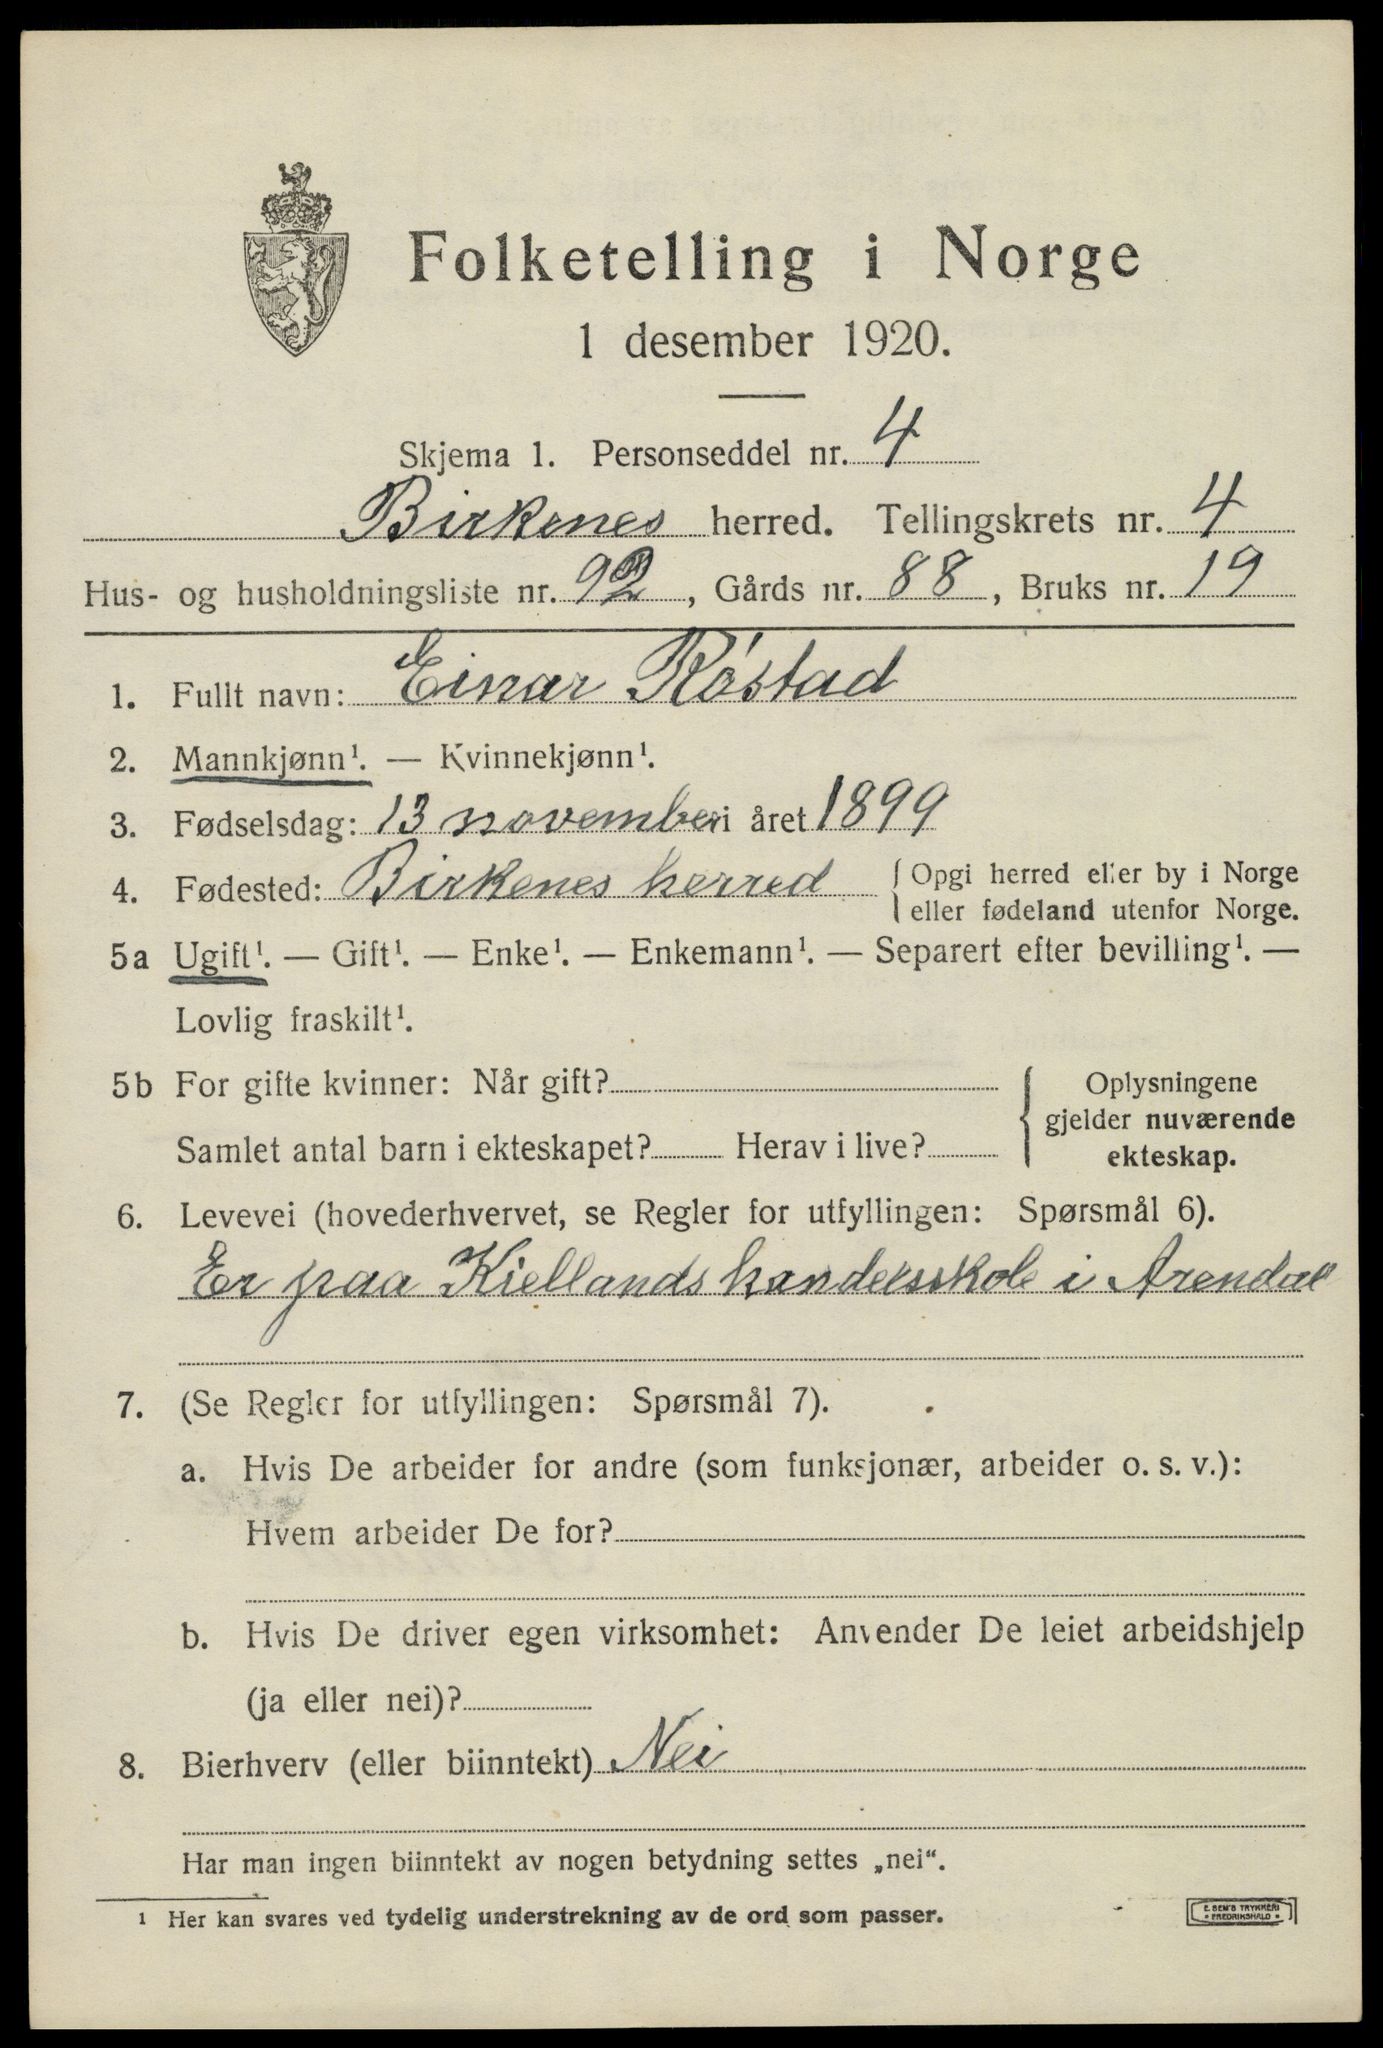 Folketelling i Norge
1 desember 1920.
Skjema 1. Personseddel nr. 4
Birkenes herred. Tellingskrets nr. 4
Hus- og husholdningsliste nr. 92, Gårds nr. 88, Bruks nr. 19
1. Fullt navn: Einar Róstad
2. Mannkjønn¹. — Kvinnekjønn¹.
3. Fødselsdag: 13 november i året 1899
4. Fødested: Birkenes herred { Opgi herred eller by i Norge
eller fødeland utenfor Norge.
5a Ugift¹. — Gift¹. — Enke¹. — Enkemann¹. — Separert efter bevilling¹. —
Lovlig fraskilt¹.
5b For gifte kvinner: Når gift? { Oplysningene
gjelder nuværende
Samlet antal barn i ekteskapet? Herav i live? ekteskap.
6. Levevei (hovederhvervet, se Regler for utfyllingen: Spørsmål 6).
Er paa Kiellands handelsskole i Arendal
7. (Se Regler for utfyllingen: Spørsmål 7).
a. Hvis De arbeider for andre (som funksjonær, arbeider o. s. v.):
Hvem arbeider De for?
b. Hvis De driver egen virksomhet: Anvender De leiet arbeidshjelp
(ja eller nei)?
8. Bierhverv (eller biinntekt) Nei
Har man ingen biinntekt av nogen betydning settes „nei“.
¹ Her kan svares ved tydelig understrekning av de ord som passer.
E. SEM'S TRYKKERI
• FREDRIKSHALD •